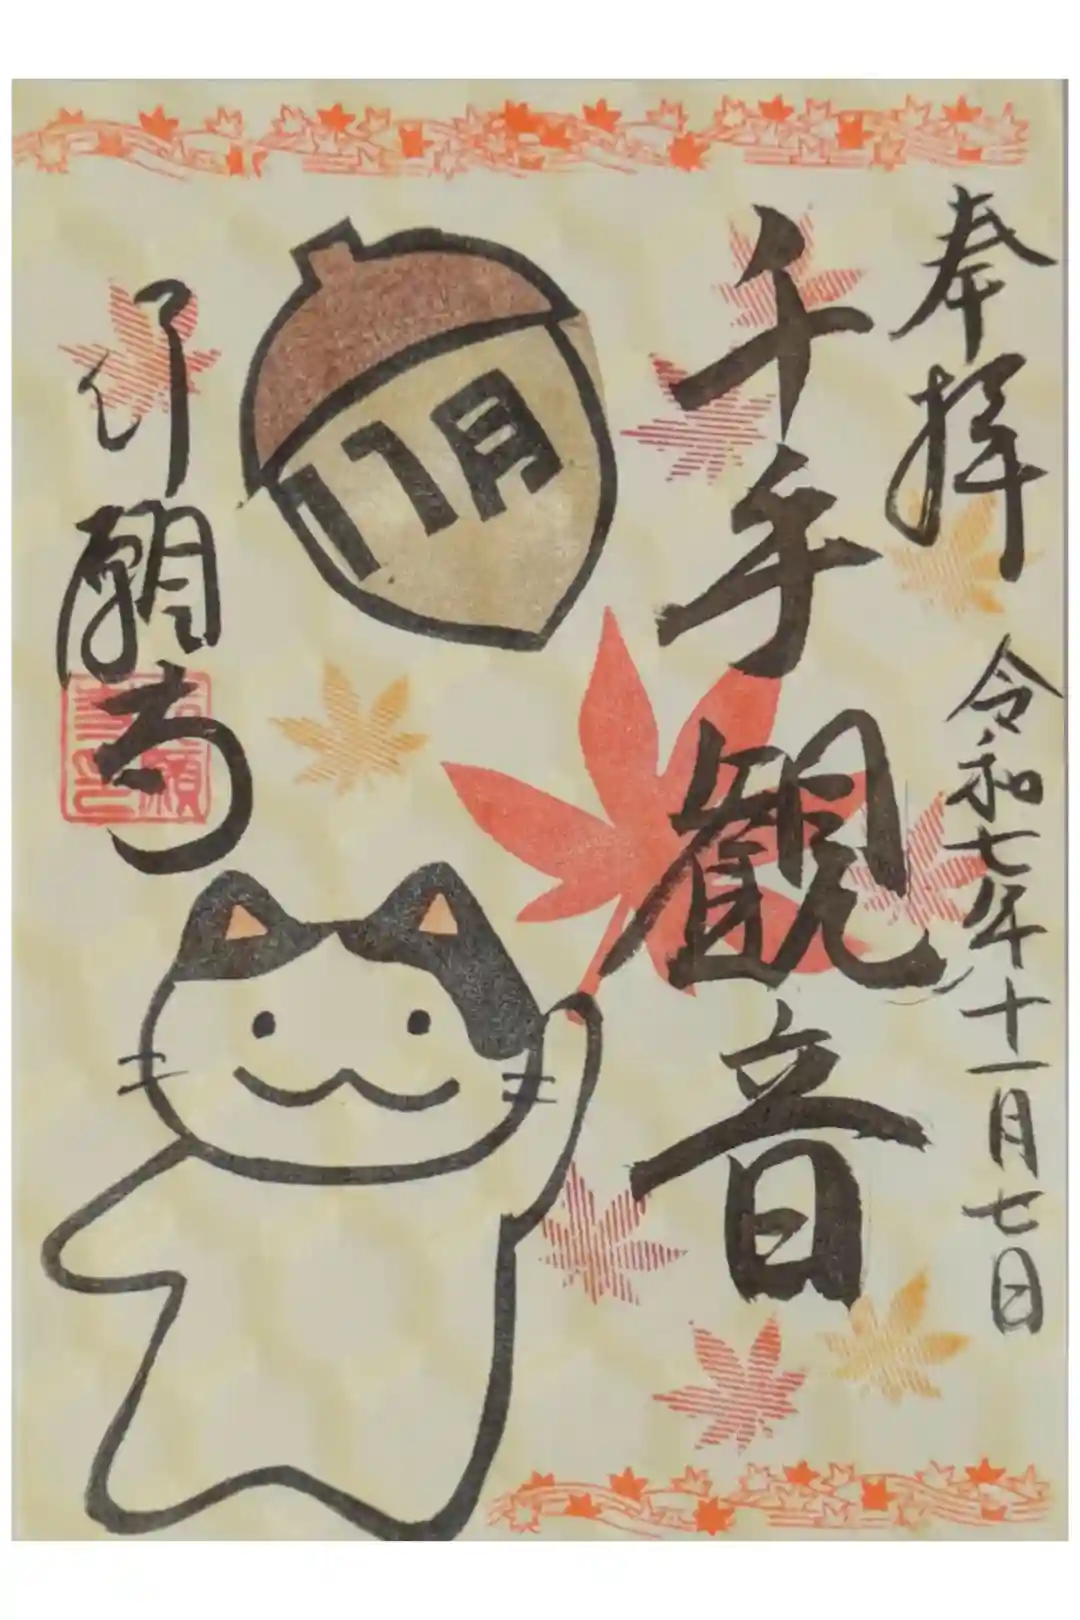 奉拝
令和七年十一月七日
千手観音
11月